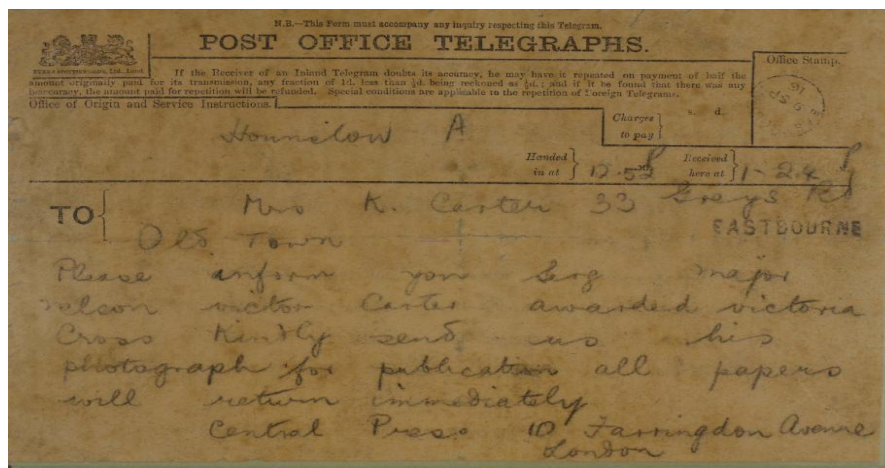 N.B.—This Form must accompany any inquiry respecting this Telegram.
POST OFFICE TELEGRAPHS.
If the Receiver of an Inland Telegram doubts its accuracy, he may have it repeated on payment of half the
amount originally paid for its transmission, any fraction of 1d. less than ½d. being reckoned as ½d.; and if it be found that there was any
inaccuracy, the amount paid for repetition will be refunded. Special conditions are applicable to the repetition of Foreign Telegrams.
Office of Origin and Service Instructions.
Office Stamp.
Hounslow A
Charges to pay
s. d.
Handed in at 12.52
Received here at 1-24
TO
Mrs K. Carter 33 Greys Rd
EASTBOURNE
Old Town
Please inform you Serg major
nelson victor Carter awarded victoria
Cross Kindly send us his
photograph for publication all papers
will return immediately
Central Press 10 Farringdon Avenue
London